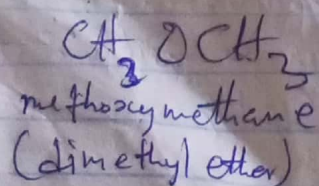 CH₃OCH₃
methoxymethane
(dimethyl ether)